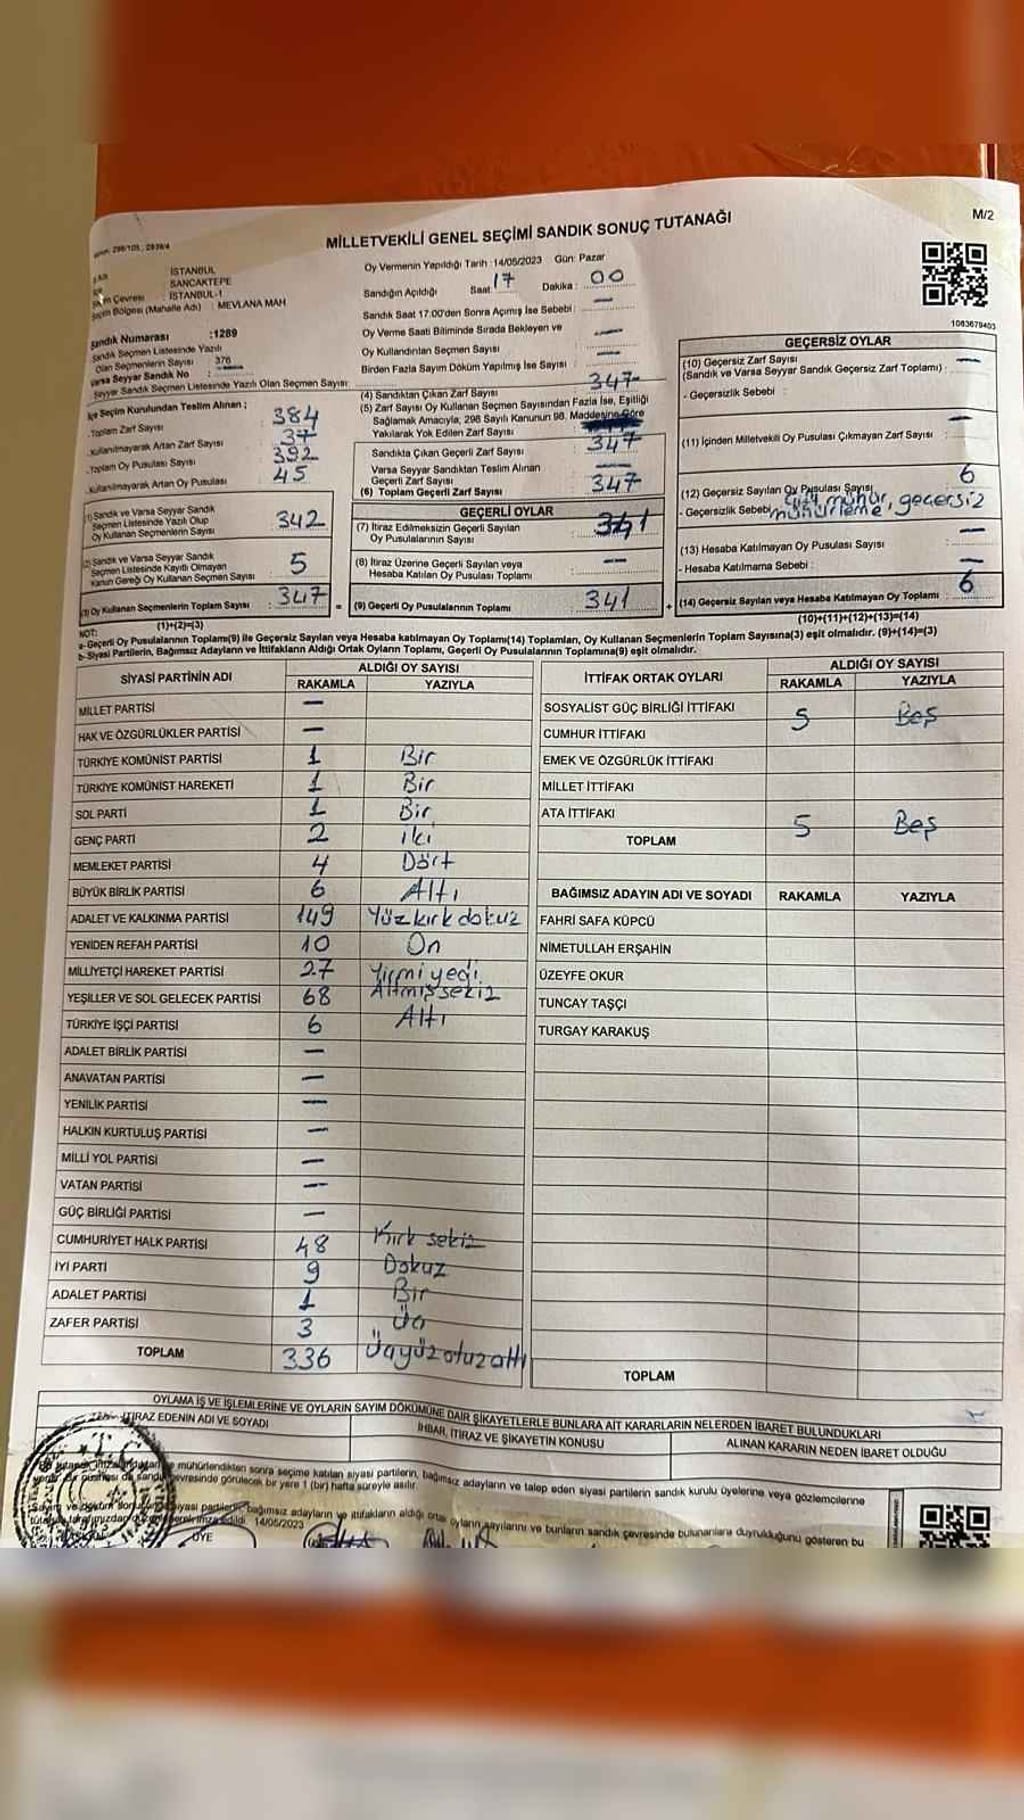 M/2
MİLLETVEKİLİ GENEL SEÇİMİ SANDIK SONUÇ TUTANAĞI
İSTANBUL
SANCAKTEPE
İSTANBUL-1
Seçim Bölgesi (Mahalle Adı) : MEVLANA MAH
Sandık Numarası :1289
Sandık Seçmen Listesinde Yazılı
Olan Seçmenlerin Sayısı 376
Varsa Seyyar Sandık No :
Seyyar Sandık Seçmen Listesinde Yazılı Olan Seçmen Sayısı:
İlçe Seçim Kurulundan Teslim Alınan ;
Toplam Zarf Sayısı 384
Kullanılmayarak Artan Zarf Sayısı 37
Toplam Oy Pusulası Sayısı 392
Kullanılmayarak Artan Oy Pusulası 45
(1) Sandık ve Varsa Seyyar Sandık
Seçmen Listesinde Yazılı Olup
Oy Kullanan Seçmenlerin Sayısı 342
(2) Sandık ve Varsa Seyyar Sandık
Seçmen Listesinde Kayıtlı Olmayan
Kanun Gereği Oy Kullanan Seçmen Sayısı 5
(3) Oy Kullanan Seçmenlerin Toplam Sayısı : 347 =
(1)+(2)=(3)
Oy Vermenin Yapıldığı Tarih :14/05/2023 Gün: Pazar
Sandığın Açıldığı Saat: 17 Dakika : 00
Sandık Saat 17:00'den Sonra Açımış İse Sebebi : —
Oy Verme Saati Bitiminde Sırada Bekleyen ve
Oy Kullandırılan Seçmen Sayısı : —
Birden Fazla Sayım Döküm Yapılmış İse Sayısı : —
(4) Sandıktan Çıkan Zarf Sayısı 347
(5) Zarf Sayısı Oy Kullanan Seçmen Sayısından Fazla İse, Eşitliği
Sağlamak Amacıyla, 298 Sayılı Kanunun 98. Maddesine Göre
Yakılarak Yok Edilen Zarf Sayısı
Sandıkta Çıkan Geçerli Zarf Sayısı 347
Varsa Seyyar Sandıktan Teslim Alınan
Geçerli Zarf Sayısı —
(6) Toplam Geçerli Zarf Sayısı 347
GEÇERLİ OYLAR
(7) İtiraz Edilmeksizin Geçerli Sayılan
Oy Pusulalarının Sayısı 341
(8) İtiraz Üzerine Geçerli Sayılan veya
Hesaba Katılan Oy Pusulası Toplamı —
(9) Geçerli Oy Pusulalarının Toplamı : 341 +
1083679403
GEÇERSİZ OYLAR
(10) Geçersiz Zarf Sayısı
(Sandık ve Varsa Seyyar Sandık Geçersiz Zarf Toplamı) : —
- Geçersizlik Sebebi :
(11) İçinden Milletvekili Oy Pusulası Çıkmayan Zarf Sayısı : —
(12) Geçersiz Sayılan Oy Pusulası Sayısı 6
- Geçersizlik Sebebi Çift mühür, geçersiz
mühürleme
(13) Hesaba Katılmayan Oy Pusulası Sayısı —
- Hesaba Katılmama Sebebi : —
(14) Geçersiz Sayılan veya Hesaba Katılmayan Oy Toplamı : 6
(10)+(11)+(12)+(13)=(14)
NOT:
a-Geçerli Oy Pusulalarının Toplamı(9) ile Geçersiz Sayılan veya Hesaba katılmayan Oy Toplamı(14) Toplamları, Oy Kullanan Seçmenlerin Toplam Sayısına(3) eşit olmalıdır. (9)+(14)=(3)
b-Siyasi Partilerin, Bağımsız Adayların ve İttifakların Aldığı Ortak Oyların Toplamı, Geçerli Oy Pusulalarının Toplamına(9) eşit olmalıdır.
SİYASİ PARTİNİN ADI ALDIĞI OY SAYISI
RAKAMLA YAZIYLA
MİLLET PARTİSİ —
HAK VE ÖZGÜRLÜKLER PARTİSİ —
TÜRKİYE KOMÜNİST PARTİSİ 1 Bir
TÜRKİYE KOMÜNİST HAREKETİ 1 Bir
SOL PARTİ 1 Bir
GENÇ PARTİ 2 iki
MEMLEKET PARTİSİ 4 Dört
BÜYÜK BİRLİK PARTİSİ 6 Altı
ADALET VE KALKINMA PARTİSİ 149 Yüz kırk dokuz
YENİDEN REFAH PARTİSİ 10 On
MİLLİYETÇİ HAREKET PARTİSİ 27 Yirmi yedi
YEŞİLLER VE SOL GELECEK PARTİSİ 68 Altmış sekiz
TÜRKİYE İŞÇİ PARTİSİ 6 Altı
ADALET BİRLİK PARTİSİ —
ANAVATAN PARTİSİ —
YENİLİK PARTİSİ —
HALKIN KURTULUŞ PARTİSİ —
MİLLİ YOL PARTİSİ —
VATAN PARTİSİ —
GÜÇ BİRLİĞİ PARTİSİ —
CUMHURİYET HALK PARTİSİ 48 Kırk sekiz
İYİ PARTİ 9 Dokuz
ADALET PARTİSİ 1 Bir
ZAFER PARTİSİ 3 Üç
TOPLAM 336 Üçyüz otuz altı
İTTİFAK ORTAK OYLARI ALDIĞI OY SAYISI
RAKAMLA YAZIYLA
SOSYALİST GÜÇ BİRLİĞİ İTTİFAKI
CUMHUR İTTİFAKI 5 Beş
EMEK VE ÖZGÜRLÜK İTTİFAKI
MİLLET İTTİFAKI
ATA İTTİFAKI
TOPLAM 5 Beş
BAĞIMSIZ ADAYIN ADI VE SOYADI RAKAMLA YAZIYLA
FAHRİ SAFA KÜPCÜ
NİMETULLAH ERŞAHİN
ÜZEYFE OKUR
TUNCAY TAŞÇI
TURGAY KARAKUŞ
TOPLAM
OYLAMA İŞ VE İŞLEMLERİNE VE OYLARIN SAYIM DÖKÜMÜNE DAİR ŞİKAYETLERLE BUNLARA AİT KARARLARIN NELERDEN İBARET BULUNDUKLARI
İTİRAZ EDENİN ADI VE SOYADI İHBAR, İTİRAZ VE ŞİKAYETİN KONUSU ALINAN KARARIN NEDEN İBARET OLDUĞU
mühürlendikten sonra seçime katılan siyasi partilerin, bağımsız adayların ve talep eden siyasi partilerin sandık kurulu üyelerine veya gözlemcilerine
çevresinde görülecek bir yere 1 (bir) hafta süreyle asılır.
siyasi partilerin, bağımsız adayların ve ittifakların aldığı ortak oyların sayılarını ve bunların sandık çevresinde bulunanlara duyrulduğunu gösteren bu
14/05/2023
BAŞKAN ÜYE
T.C.